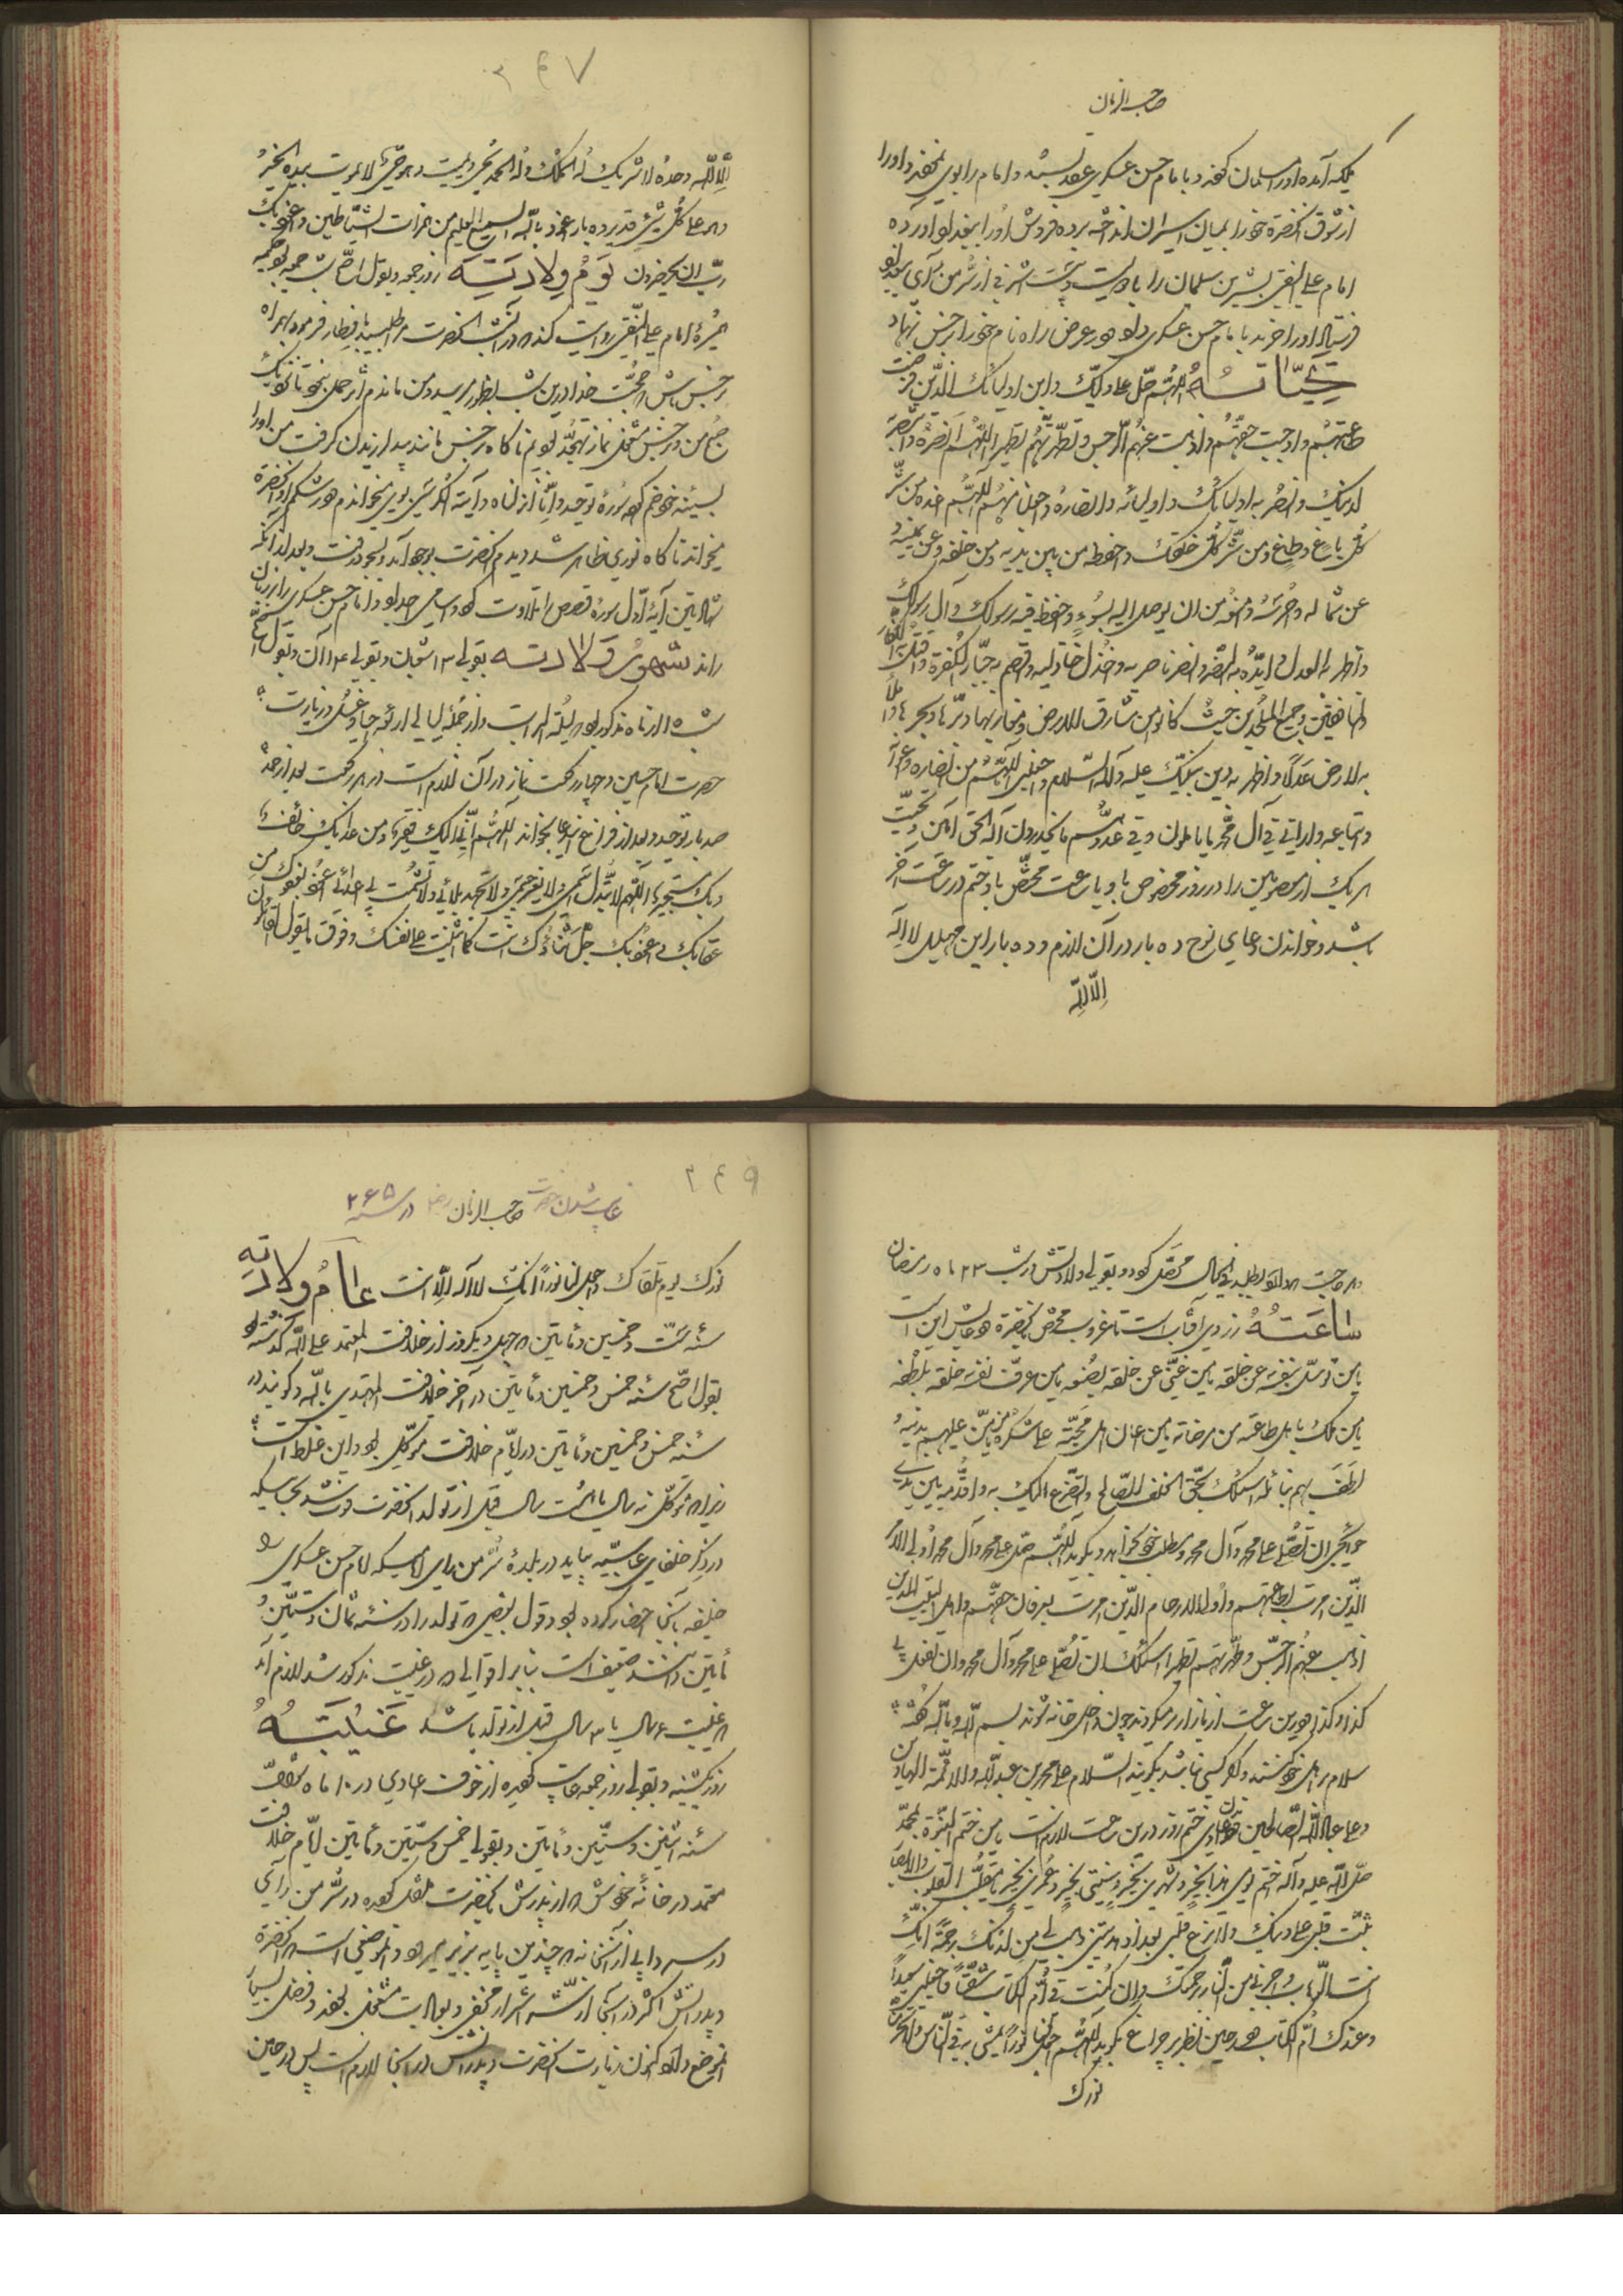 صاحب الزمان
یکه آمده او را مسلمان کند و با امام حسن عسکری عقد بسته و امام را بوی نمود و او را
از شوق آنحضرة خود را بمیان اسیران انداخته برده فروش او را ببغداد آورده
امام علی النقی بشیر بن سلمان را با دویست و بیست اشرفی از سر من رأی ببغداد
فرستاد او را خرید با امام حسن عسکری داد و در عرض راه نام خود را نرجس نهاد
تحیاته اللهم صل علی ولیک و ابن اولیائک الذین فرضت
طاعتهم و اوجبت حقهم و اذهبت عنهم الرجس و تطهرتهم تطهیرا اللهم انصره و انتصر
لدینک و انصر به اولیائک و اولیائه و انصاره و اجعلنا منهم اللهم اعذه من شر
کل باغ و طاغ و من شر کل خلقک و احفظه من بین یدیه و من خلفه و عن یمینه و
عن شماله و احرسه و امنعه من ان یوصل الیه بسوء و احفظ فیه رسولک و آل رسولک
و اظهر به العدل و ایده بالنصر و انصر ناصریه و اخذل خاذلیه و اقصم به جبابرة الکفرة و اقتل به الکفار
و المنافقین و جمیع الملحدین حیث کانوا من مشارق الارض و مغاربها و برها و بحرها و املأ
به الارض عدلا و اظهر به دین نبیک علیه و آله السلام و اجعلنی اللهم من انصاره و اعوانه
و اتباعه و ارانی فی آل محمد ما یاملون و فی عدوهم ما یحذرون اله الحق آمین و تحیت
هر یک از معصومین را در روز مخصوص با و یا ساعت مختص باو ختم در ساعت آخر
باشد و خواندن دعای نوح ده بار در آن لازم و ده بار این تهلیل لا اله
الا الله
۳۴۷
الا الله وحده لا شریک له له الملک و له الحمد یحیی و یمیت و هو حی لا یموت بیده الخیر
و هو علی کل شیئ قدیر و ده بار اعوذ بالله السمیع العلیم من همزات الشیاطین و اعوذ بک
رب ان یحضرون یوم ولادته روز جمعه و بقول اصح شب جمعه حکیمه
عمه امام علی النقی روایت کند که در آن شب آنحضرت مرا طلبید با فطار فرمود همراه
نرجس باش که حجت خدا درین شب بظهور میرسد و من ماندم اثر حمل نبود تا نزدیک
صبح من و نرجس مشغول نماز تهجد بودیم ناگاه نرجس مانند بید لرزیدن گرفت من او را
بسینه خود ضم کرده سوره توحید و انا انزلناه و آیة الکرسی بروی میخواندم و در شکم او آنحضرة
میخواند ناگاه نوری ظاهر شد و دیدم آنحضرت بوجود آمد و بسجود رفت و بعد از آنکه
شهادتین آیه اول سوره قصص را تلاوت کرد و اسامی اجداد خود تا امام حسن عسکری را بر زبان
راند شهور ولادته بقولی ۳ شعبان و بقولی ۱۴ آن و بقول اصح
شب ۱۵ از ماه مذکور بود که لیلة البرات و از جمله لیالی اربعه جا و غسل و زیارت
حضرت امام حسین و چهار رکعت نماز در آن لازمست و در هر رکعت بعد از حمد
صد بار توحید و بعد از فراغ این دعا بخواند اللهم انی الیک فقیر و من عذابک خائف
و بک مستجیر اللهم لا تبدل اسمی و لا تغیر جسمی و لا تجهد بلائی و لا تشمت بی اعدائی اعوذ بعفوک من
عقابک و اعوذ بک جل ثناؤک انت کما اثنیت علی نفسک و فوق ما یقول القائلون
و هر حاجت که دارد بطلبد فی الحال محصل گردد و بقولی ولادتش در شب ۲۳ ماه رمضان
ساعته زردی آفتاب است تا غروب مختص آنحضرة دعایش این است
یا من توحد بنفسه عن خلقه یا من غنی عن خلقه بصنعه یا من عرف نفسه خلقه بلطفه
یا من سلک باهل طاعته من مرضاته یا من اعان اهل محبته علی شکره یا من من علیهم بدینه و
لطف لهم بنائله اسئلک بحق الخلف الصالح و اتضرع الیک به و اقدمه بین یدی
حوائجی ان تصلی علی محمد و آل محمد و مطلب خود بخواهد و بگوید اللهم صل علی محمد و آل محمد اولی الامر
الذین امرت بطاعتهم و اولو الارحام الذین امرت بعرفان حقهم و اهل البیت الذین
اذهبت عنهم الرجس و طهرتهم تطهیرا اسئلک ان تصلی علی محمد و آل محمد و ان تفعل بی
کذا و کذا و درین ساعت از بازار مرکوند چون داخل خانه شوند بسم الله و بالله گفته
سلام بر اهل خود کنند و اگر کسی نباشد بگویند السلام علی محمد بن عبد الله و الائمة الهادین
و علی عباد الله الصالحین و دعای ختم روز درین ساعت لازمست یا من ختم النبوة بمحمد
صلی الله علیه و آله اختم لی فی یومی هذا بخیر و شهری بخیر و سنتی بخیر و عمری بخیر یا مقلب القلوب و الابصار
ثبت قلبی علی دینک و لا تزغ قلبی بعد اذ هدیتنی و هب لی من لدنک رحمة انک
انت الوهاب و اجرنی من النار برحمتک و ان کنت فی ام الکتاب شقیا فاجعلنی سعیدا
و عندک ام الکتاب و در حین نظر بر چراغ بگوید اللهم اجعل لنا نورا نمشی به فی الناس و لا تحرمنا
نورک
۳۴۹
غایب شدن حضرت صاحب الزمان در سنه ۲۶۵
نورک یوم نلقاک و اجعل لنا نورا انک لا اله الا انت عام ولادته
سنه ست و خمسین و مأتین که چهل و یک روز از خلافت المعتمد علی الله گذشته بود
بقول اصح سنه خمس و خمسین و مأتین در آخر خلافت المهتدی بالله و گویند در
سنه خمس و خمسین و مأتین در ایام خلافت متوکل بود و این غلط است
زیرا که متوکل نه سال یا هشت سال قبل از تولد آنحضرت فوت شد بحسابیکه
در ذکر خلفای عباسیه بیاید در بلده سر من رأی در ایامیکه امام حسن عسکری را
خلیفه بآنجا احضار کرده بود و قول بعضی که تولد را در سنه ثمان و ستین و
مأتین دانند ضعیف است بنابر اقوالی که در غیبت مذکور شد لازم آید
که غیبت ۶ سال یا ۳ سال قبل از تولد باشد غیابته
روز یکشنبه و بقولی روز جمعه غایب گردیده از خوف اعادی در ۱۰ ماه شوال
سنه اثنین و ستین و مأتین و بقولی خمس و ستین و مأتین ایام خلافت
معتمد در خانه خودش که از پدرش بآنحضرت منتقل گردیده در سر من رأی
در سردابی از آنخانه که چندین پایه بزیر میرود و آنموضعی است که آنحضرة
و پدرانش اکثر در آنجا از شر اشرار مختفی و بعبادت مشغول بودند و فضل بسیار
آنموضع دارد اکنون زیارت آنحضرت و پدرانش در آنجا لازم است پس در حین